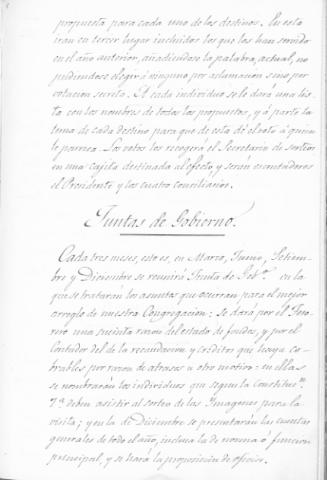 propuesta para cada uno de los destinos. En esta
iran en tercer lugar incluidos los que los han servido
en el año anterior, añadiendose la palabra, actual, no
pudiendose elegir á ninguno por aclamacion sino por
votacion secreta. A cada individuo se le dará una lis-
ta con los nombres de todos los propuestos, y á parte la
terna de cada destino para que de esta dé el voto á quien
le parezca. Los votos los recogerá el Secretario de
en una cajita destinada al efecto, y serán escrutadores
el Presidente y los cuatro conciliarios.
Juntas de Gobierno.
Cada tres meses, esto es, en Marzo, Junio, Setiem-
bre y Diciembre se reunirá Junta de Gob.no en la
que se trataran los asuntos que ocurran para el mejor
arreglo de nuestra Congregacion: se dará por el Teso-
rero una sucinta razon del estado de fondos, y por el
Contador del de la recaudacion y creditos que haya co-
brables por razon de atrasos u otro motivo: en ellas
se nombrarán los individuos que segun la Constitucn.
7.ª deben asistir al sorteo de las Imagenes para la
visita; y en la de Diciembre se presentarán las cuentas
generales de todo el año, inclusa la de novena ó funcion
principal, y se hará la proposicion de oficios.